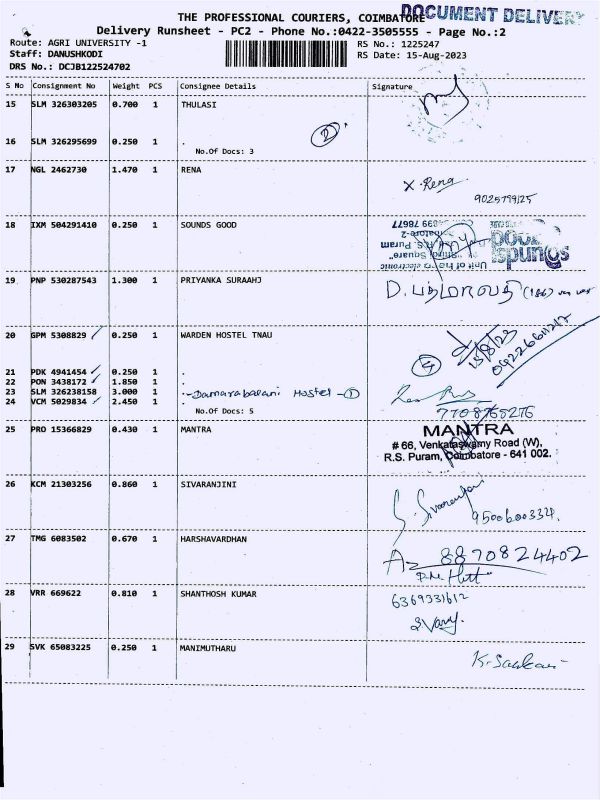 DOCUMENT DELIVERY
THE PROFESSIONAL COURIERS, COIMBATORE
Delivery Runsheet - PC2 - Phone No.:0422-3505555 - Page No.:2
Route: AGRI UNIVERSITY -1 RS No.: 1225247
Staff: DANUSHKODI RS Date: 15-Aug-2023
DRS No.: DCJB122524702
S No Consignment No Weight PCS Consignee Details Signature
15 SLM 326303205 0.700 1 THULASI
16 SLM 326295699 0.250 1 . 2
No.Of Docs: 3
17 NGL 2462730 1.470 1 RENA X. Rena
9025799125
18 IXM 504291410 0.250 1 SOUNDS GOOD
19 PNP 530287543 1.300 1 PRIYANKA SURAAHJ D. பத்மாவதி
20 GPM 5308829 ✓ 0.250 1 WARDEN HOSTEL TNAU 15/8/23
21 PDK 4941454 ✓ 0.250 1 .
22 PON 3438172 ✓ 1.850 1 .
23 SLM 326238158 3.000 1 Hostel - 1
24 VCM 5029834 ✓ 2.450 1 .
No.Of Docs: 5 7708765276
25 PRO 15366829 0.430 1 MANTRA MANTRA
# 66, Venkataswamy Road (W),
R.S. Puram, Coimbatore - 641 002.
26 KCM 21303256 0.860 1 SIVARANJINI S. Sivaranjani
9500600334
27 TMG 6083502 0.670 1 HARSHAVARDHAN 8870824402
28 VRR 669622 0.810 1 SHANTHOSH KUMAR 6369331612
29 SVK 65083225 0.250 1 MANIMUTHARU